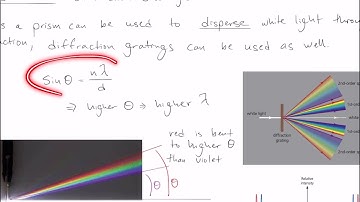 s a prism can be used to disperse white light throug
action, diffraction gratings can be used as well.
Sin θ = nλ/d
⇒ higher θ ⇒ higher λ
red is bent
to higher θ
than violet
θ
θ
white light
diffraction
grating
2nd-order sp
1st-ord
white
1st-ord
2nd-order sp
Relative
intensity